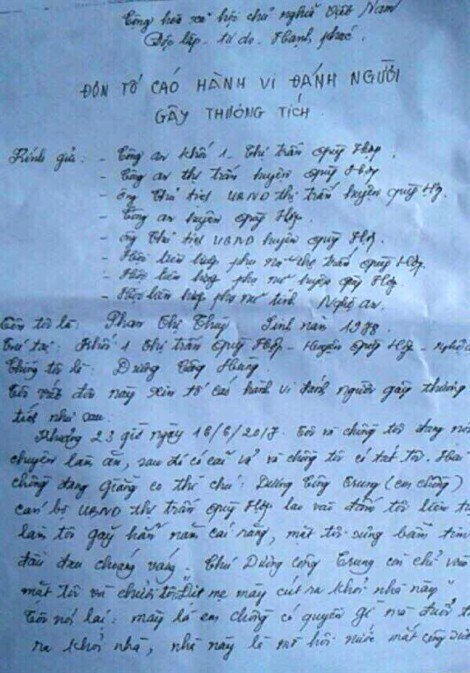 Cộng hòa xã hội chủ nghĩa Việt Nam
Độc lập - tự do - Hạnh phúc.
ĐƠN TỐ CÁO HÀNH VI ĐÁNH NGƯỜI
GÂY THƯƠNG TÍCH
Kính gửi: - Công an khối 1 - Thị trấn Quỳ Hợp.
- Công an thị trấn huyện Quỳ Hợp
- Ông Chủ tịch UBND thị trấn huyện Quỳ Hợp.
- Công an huyện Quỳ Hợp.
- Ông Chủ tịch UBND huyện Quỳ Hợp.
- Hội liên hiệp phụ nữ thị trấn Quỳ Hợp.
- Hội liên hiệp phụ nữ huyện Quỳ Hợp.
- Hội liên hiệp phụ nữ tỉnh Nghệ An.
Tên tôi là: Phan Thị Thủy Sinh năm 1978
Trú tại: Khối 1 Thị trấn Quỳ Hợp - Huyện Quỳ Hợp - Nghệ
Chồng tôi là: Dương Công Hùng
Tôi viết đơn này xin tố cáo hành vi đánh người gây thương
tích như sau.
Khoảng 23 giờ ngày 16/6/2017. Tôi và chồng tôi đang nói
chuyện làm ăn, sau đó có cãi vả và chồng tôi có tát tôi. Hai
chồng đang giằng co thì chú: Dương Công Trung (em chồng)
cán bộ UBND thị trấn Quỳ Hợp lao vào đấm tôi liên
làm tôi gãy hẳn năm cái răng, mặt tôi sưng bầm tím
đầu đau choáng váng. Chú Dương Công Trung còn chỉ vào
mặt tôi và chưởi tôi "Địt mẹ mày cút ra khỏi nhà này"
Tôi nói lại: mày là em chồng có quyền gì mà đuổi
ra khỏi nhà, nhà này là mồ hôi nước mắt công